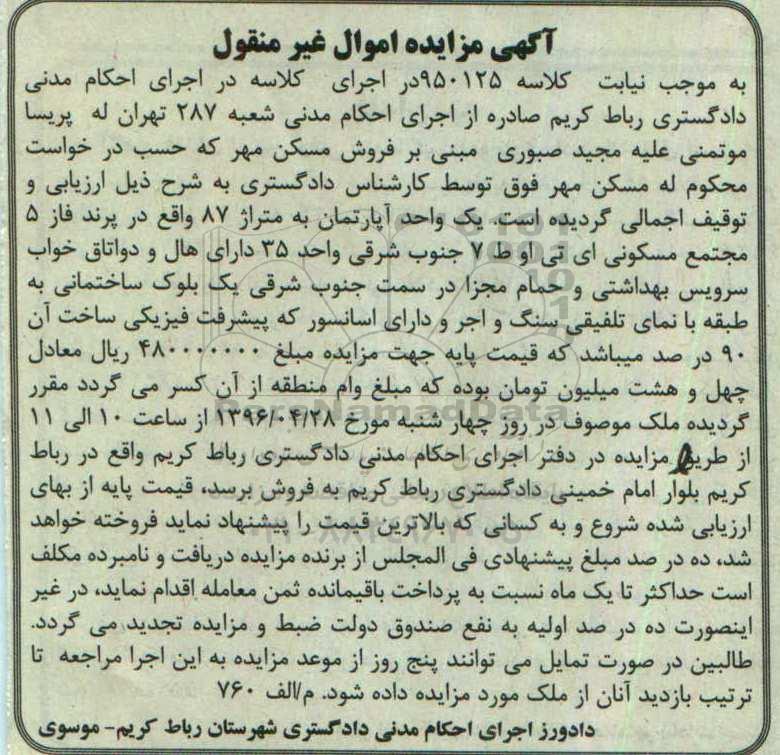 آگهی مزایده اموال غیر منقول
به موجب نیابت کلاسه ۹۵۰۱۲۵در اجرای کلاسه در اجرای احکام مدنی
دادگستری رباط کریم صادره از اجرای احکام مدنی شعبه ۲۸۷ تهران له پریسا
موتمنی علیه مجید صبوری مبنی بر فروش مسکن مهر که حسب در خواست
محکوم له مسکن مهر فوق توسط کارشناس دادگستری به شرح ذیل ارزیابی و
توقیف اجمالی گردیده است. یک واحد آپارتمان به متراژ ۸۷ واقع در پرند فاز ۵
مجتمع مسکونی ای تی او ط ۷ جنوب شرقی واحد ۳۵ دارای هال و دواتاق خواب
سرویس بهداشتی و حمام مجزا در سمت جنوب شرقی یک بلوک ساختمانی به
طبقه با نمای تلفیقی سنگ و اجر و دارای اسانسور که پیشرفت فیزیکی ساخت آن
۹۰ در صد میباشد که قیمت پایه جهت مزایده مبلغ ۴۸۰۰۰۰۰۰۰ ریال معادل
چهل و هشت میلیون تومان بوده که مبلغ وام منطقه از آن کسر می گردد مقرر
گردیده ملک موصوف در روز چهار شنبه مورخ ۱۳۹۶/۰۴/۲۸ از ساعت ۱۰ الی ۱۱
از طریق مزایده در دفتر اجرای احکام مدنی دادگستری رباط کریم واقع در رباط
کریم بلوار امام خمینی دادگستری رباط کریم به فروش برسد، قیمت پایه از بهای
ارزیابی شده شروع و به کسانی که بالاترین قیمت را پیشنهاد نماید فروخته خواهد
شد، ده در صد مبلغ پیشنهادی فی المجلس از برنده مزایده دریافت و نامبرده مکلف
است حداکثر تا یک ماه نسبت به پرداخت باقیمانده ثمن معامله اقدام نماید، در غیر
اینصورت ده در صد اولیه به نفع صندوق دولت ضبط و مزایده تجدید می گردد.
طالبین در صورت تمایل می توانند پنج روز از موعد مزایده به این اجرا مراجعه تا
ترتیب بازدید آنان از ملک مورد مزایده داده شود. م/الف ۷۶۰
دادورز اجرای احکام مدنی دادگستری شهرستان رباط کریم- موسوی